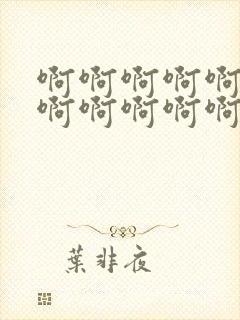 啊啊啊啊啊
啊啊啊啊啊
葉非夜